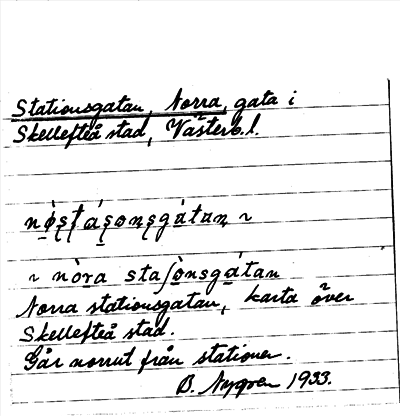 Stationsgatan, Norra, gata i
Skellefteå stad, Västerb. l.
nø̀ṣṭáṣonṣgátaṇ ~
~ nòra staʃònsgátan
Norra stationsgatan, karta över
Skellefteå stad.
Går norrut från stationen.
B. Nygren 1933.